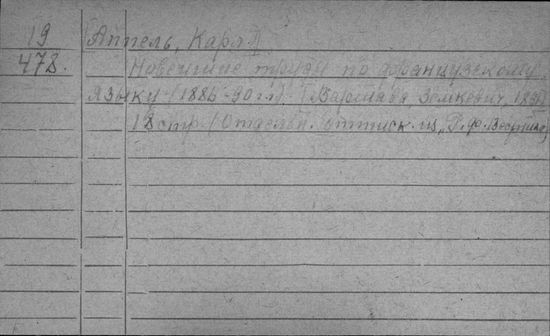 19 Аппель, Карл
478. Новейшие труды по французскому
языку (1886-90 гг.). Варшава Земкевич, 189
18 стр. (Отдельн. оттиск из „Р. Ф. Вестника")